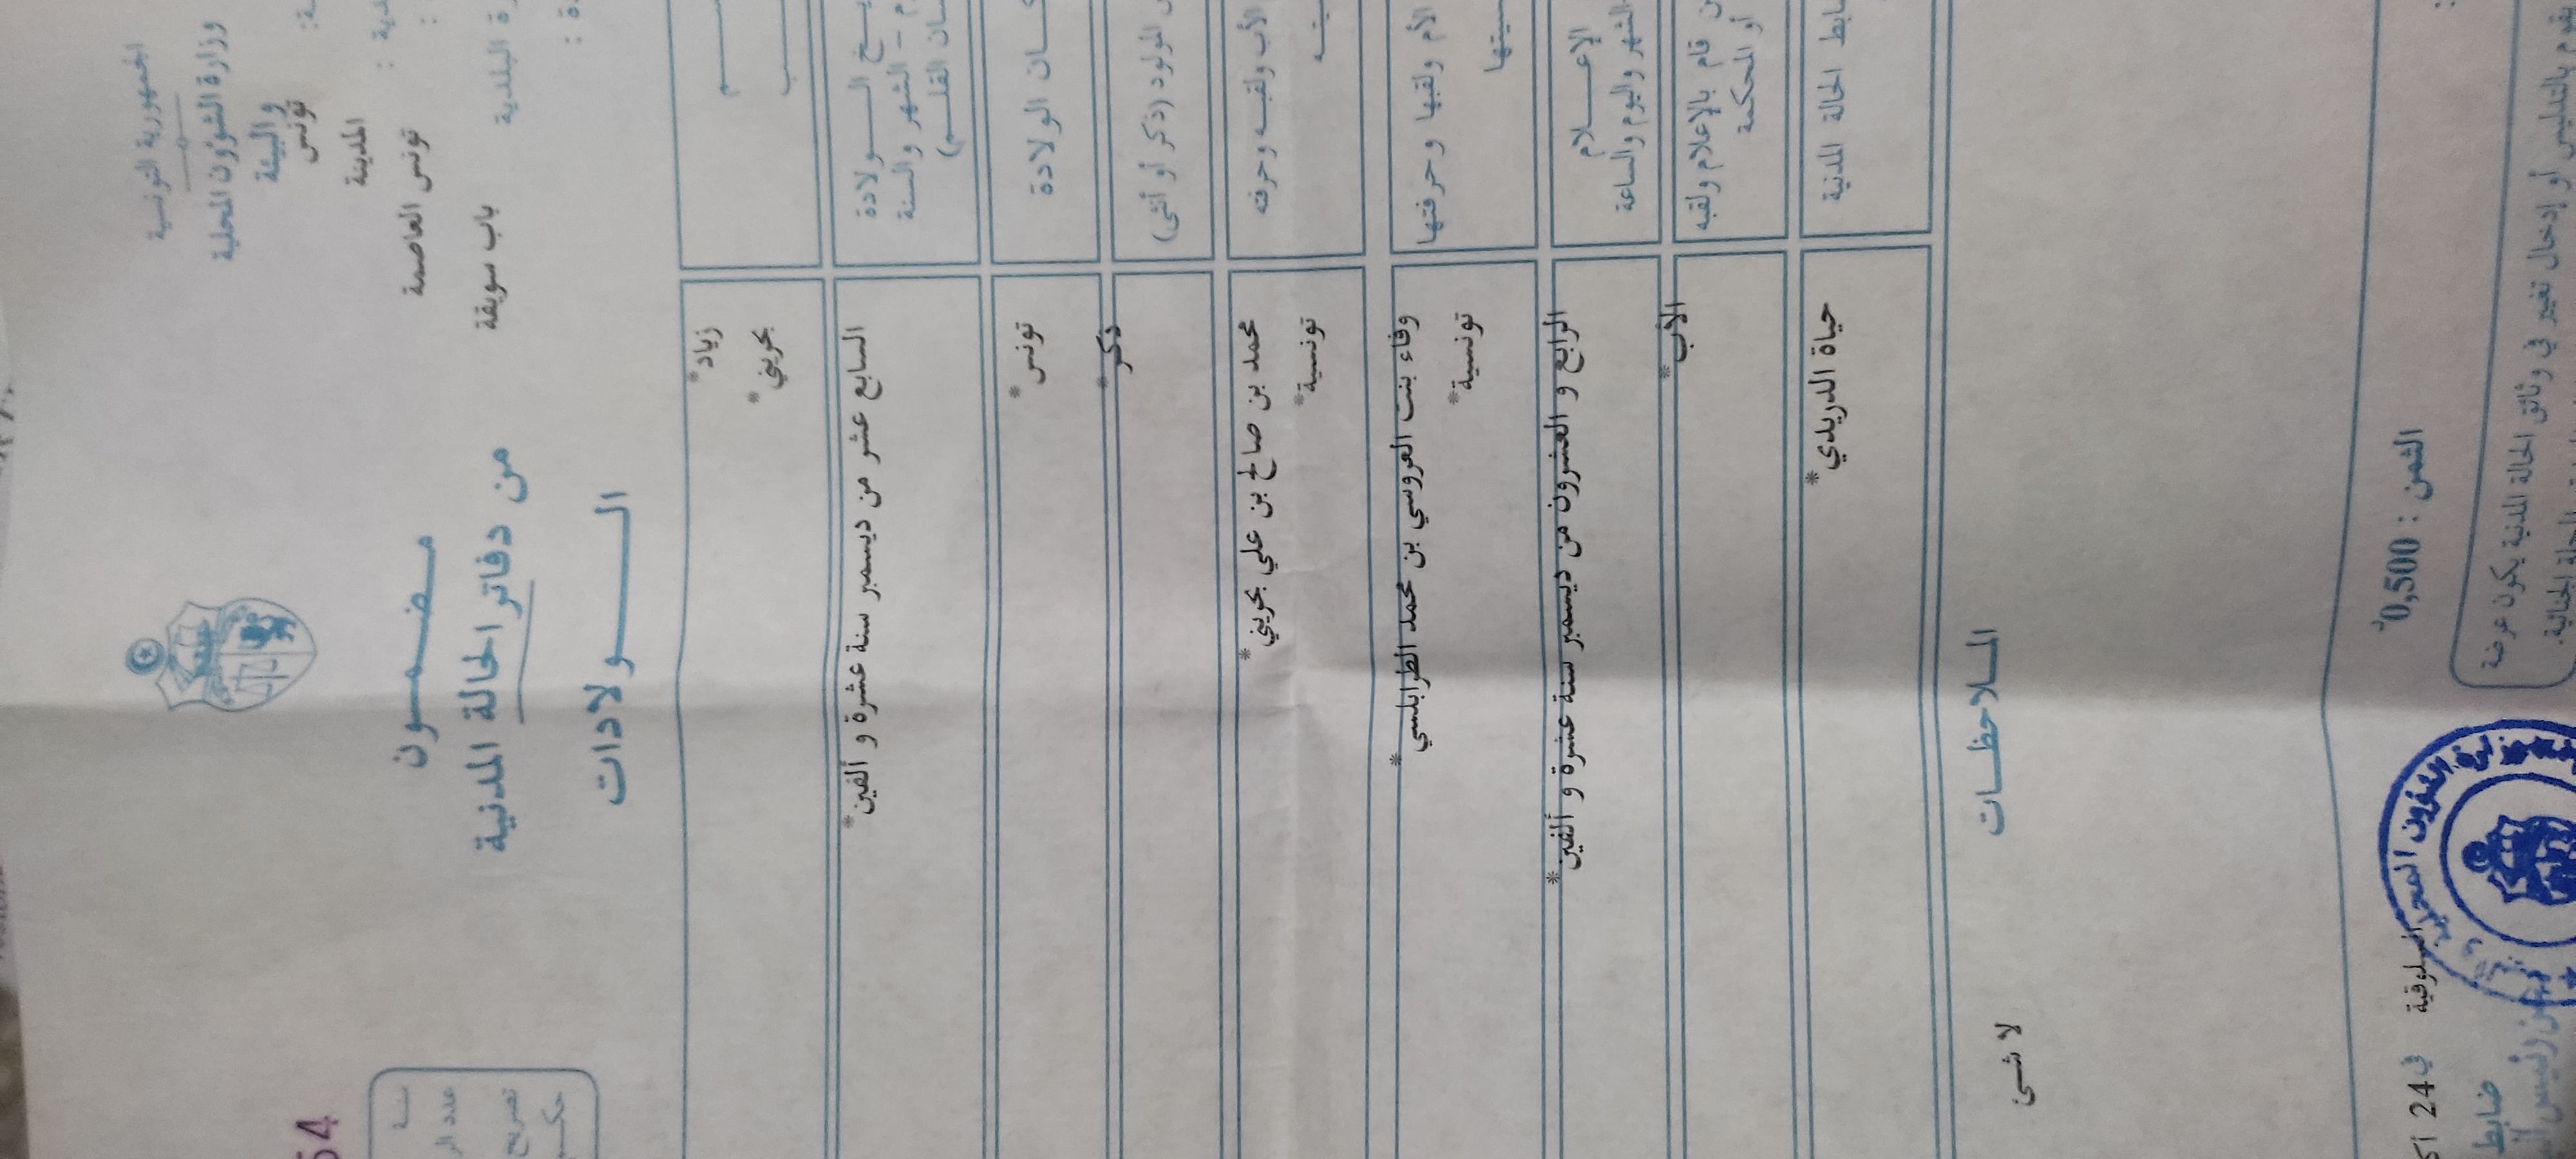 الجمهورية التونسية
وزارة الشؤون المحلية
و البيئة
تونس
المدينة
تونس العاصمة
باب سويقة
البلدية
مضمون
من دفاتر الحالة المدنية
الولادات
سنة
عدد الر
تصريح
حكم
54
زياد*
بحريني*
الولادة
الشهر والسنة
القلم)
السابع عشر من ديسمبر سنة عشرة و ألفين*
الولادة
تونس*
المولود (ذكر أو أنثى)
ذكر*
الأب ولقبه وحرفته
محمد بن صالح بن علي بحريني*
تونسية*
الأم ولقبها وحرفتها
وفاء بنت العروسي بن محمد الطرابلسي*
تونسية*
الإعلام
الشهر واليوم والساعة
الرابع و العشرون من ديسمبر سنة عشرة و ألفين*
قام بالإعلام ولقبه
أو المحكمة
الأب*
الحالة المدنية
حياة الدريدي*
الملاحظات
لا شئ
الثمن : 0,500د
السلوقية في 24
ضابط
يقوم بالتدليس أو إدخال تغيير في وثائق الحالة المدنية يكون عرضة
المجلة الجنائية.